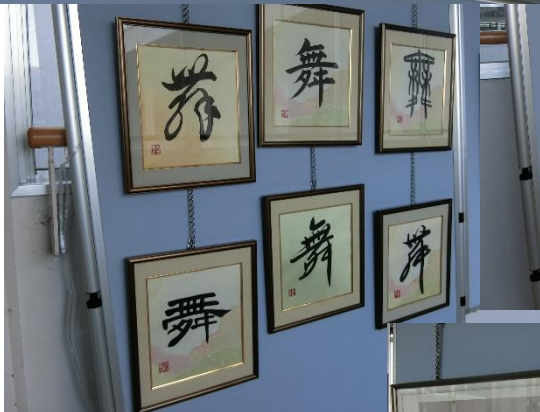 舞
舞
舞
舞
舞
舞